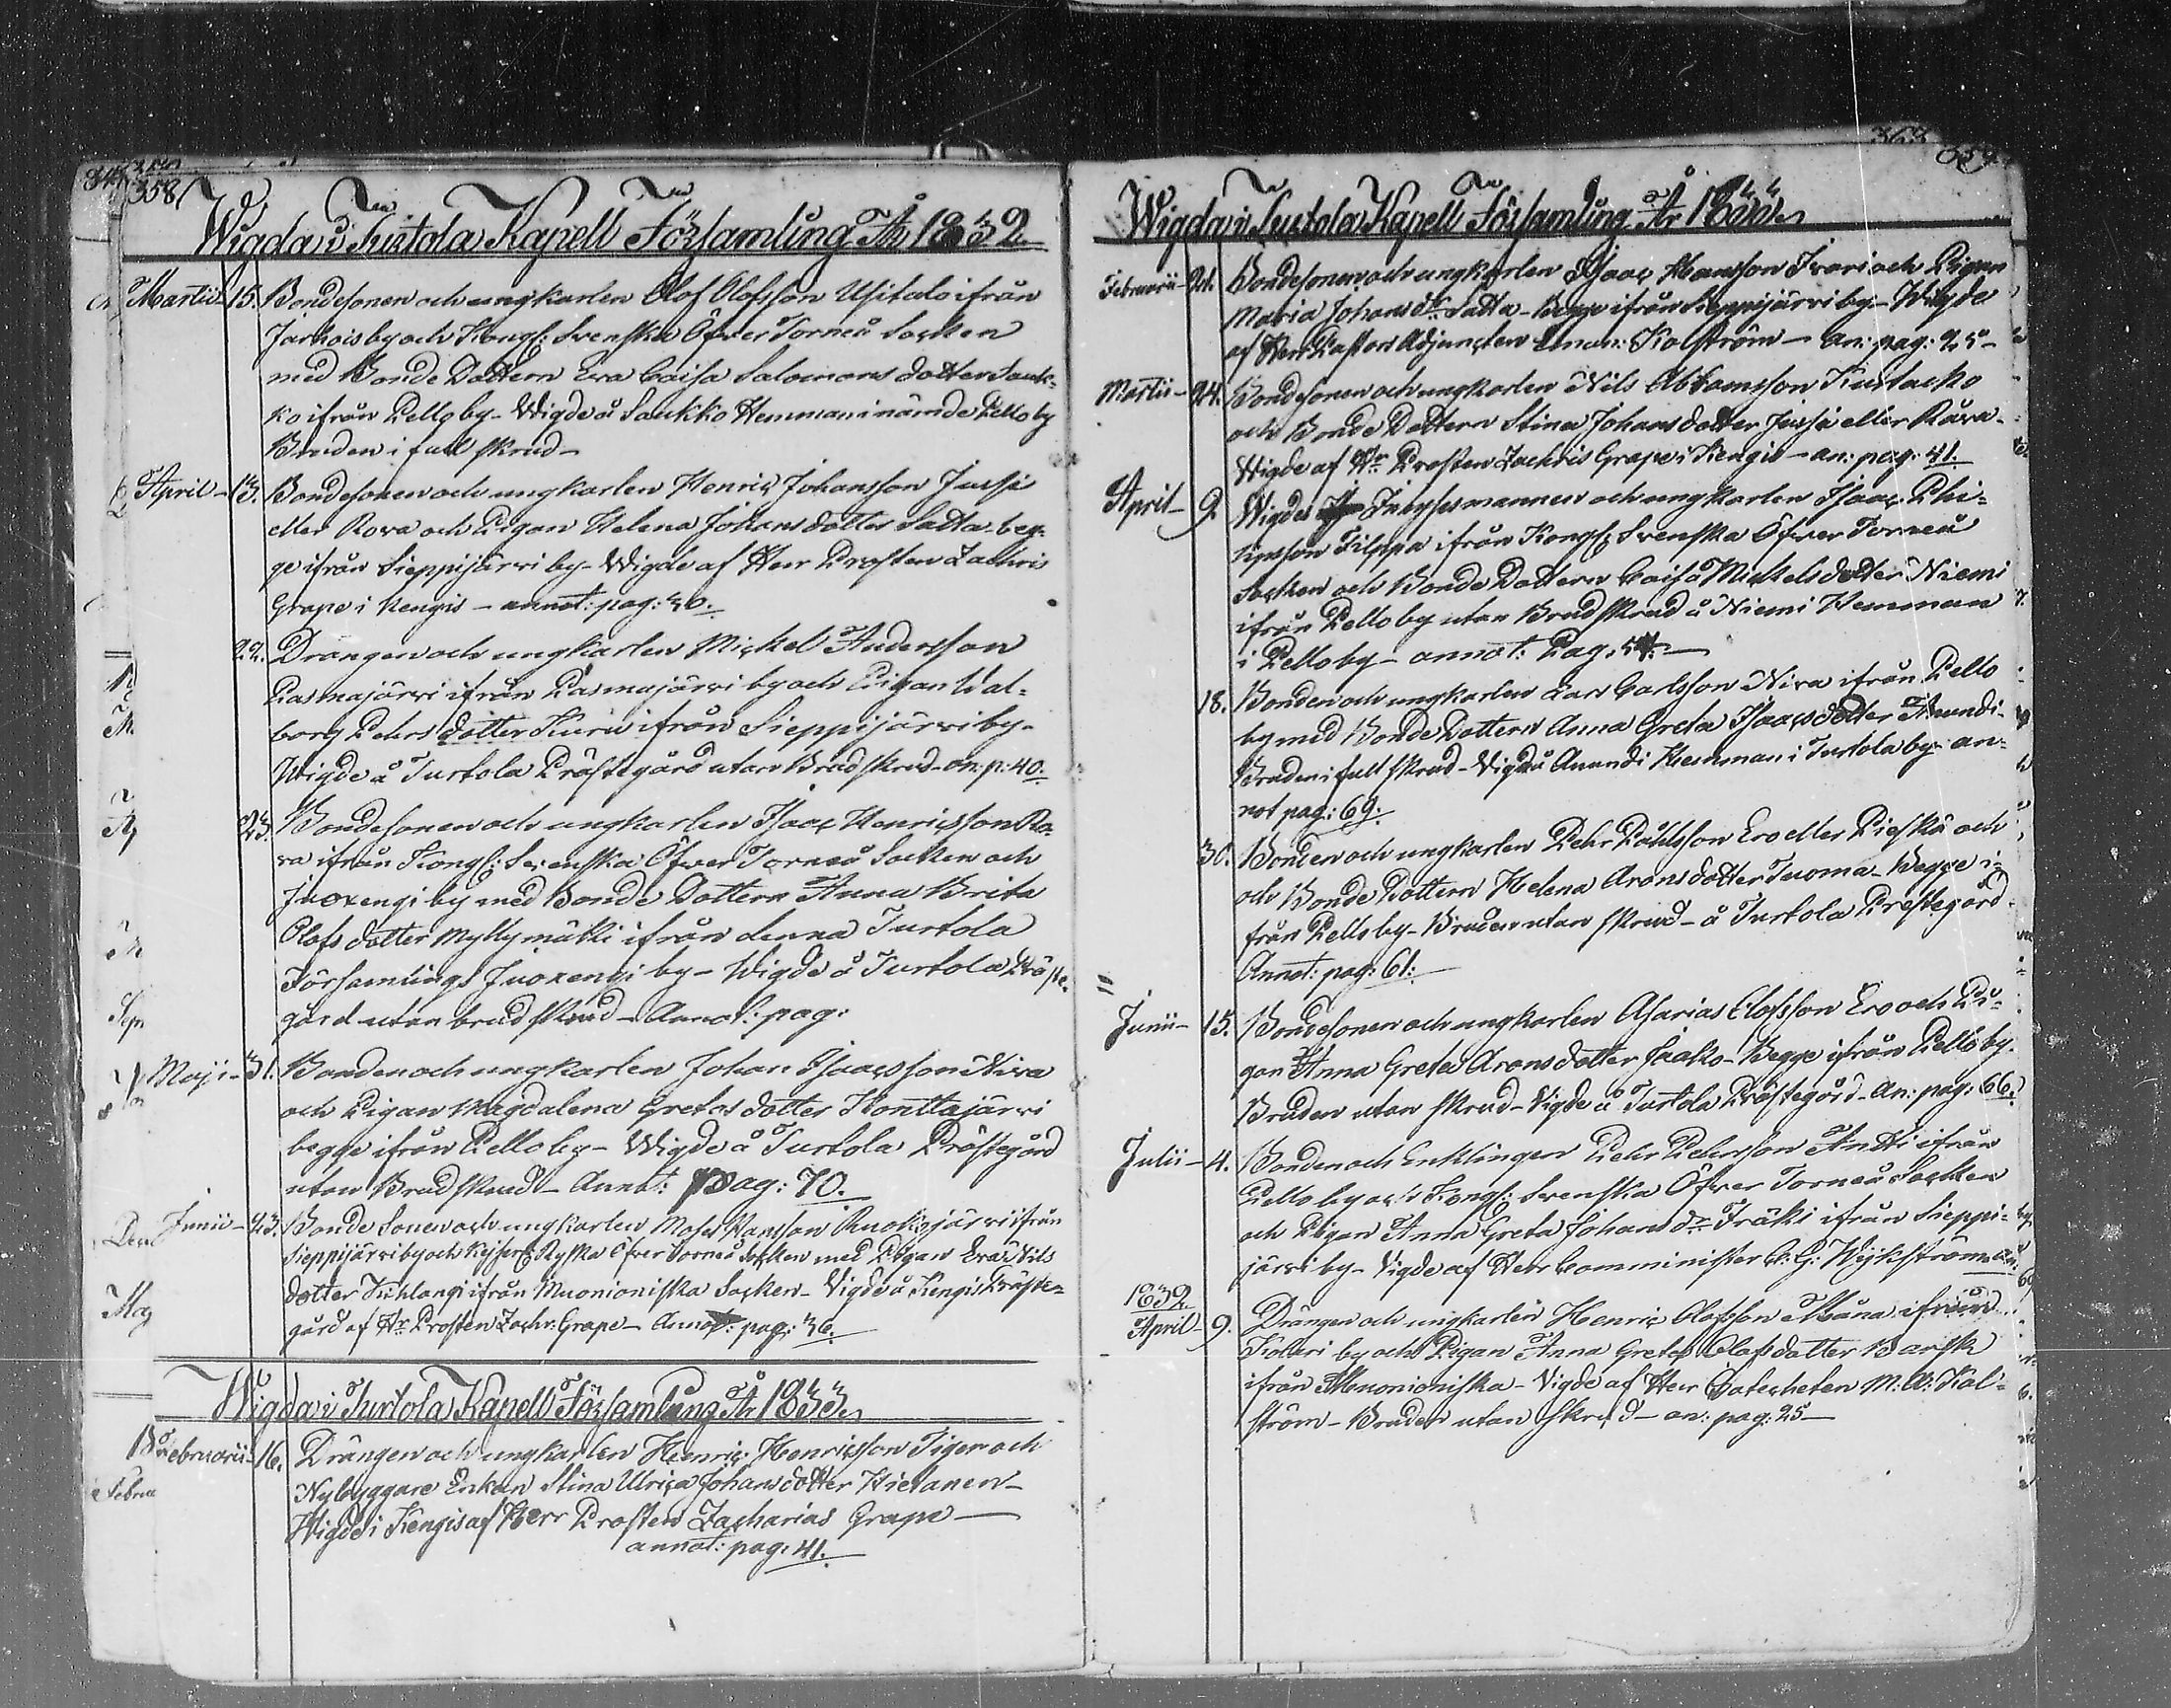 358
Wigda i Turtola Kapell Församling År 1832
Martii 15. Bondesonen och ungkarlen Olof Olofsson Usitalo ifrån
Jarhois by och Kongl: Svenska Öfver Torneå Socken
med Bonde Dottern Eva Caisa Salomons dotter Sauk-
ko ifrån Pello by - Wigde å Saukko Hemman i nämde Pello by
Bruden i full skrud -
April - 13. Bondesonen och ungkarlen Henric Johansson Jussi
eller Rova och Pigan Helena Johans dotter Satta - beg-
ge ifrån Sieppijärvi by - Wigde af Herr Prosten Zachris
Grape i Kengis - annot: pag: 40.
22. Drängen och ungkarlen Mickel Andersson
Pasmajärvi ifrån Pasmajärvi by och Pigan Wal-
borg Pehrs dotter Kuru ifrån Sieppijärvi by -
Wigde å Turtola Prästegård utan Brudskrud - an: p: 40.
23. Bondesonen och ungkarlen Isaac Henricsson Ro-
va ifrån Kongl: Svenska Öfver Torneå Socken och
Juoxengi by med Bonde Dottern Anna Brita
Olofs dotter Myllymäki ifrån denna Turtola
Församlings Juoxengi by - Wigde å Turtola Präste-
gård utan brudskrud - Annot: pag:
Maji - 31. Bonden och ungkarlen Johan Isacsson Niva
och Pigan Magdalena Gretas dotter Konttajärvi
begge ifrån Pello by - Wigde å Turtola Prästegård
utan Brudskrud - Annot: pag: 70.
Junii - 23. Bonde Sonen och ungkarlen Moses Hansson Ruokojärvi ifrån
Sieppijärvi by och Kejserl. Ryska Öfver Torneå Socken med Pigan Eva Nils
dotter Kuhlangi ifrån Muonioniska Socken - Vigde å Kengis Präste-
gård af Hr Prosten Zachr. Grape - Annot: pag: 36.
Wigda i Turtola Kapell Församling År 1833
Februarii - 16. Drängen och ungkarlen Henric Henricsson Tiger och
Nybyggare Enkan Stina Ulrica Johans dotter Hietanen -
Wigde i Kengis af Herr Prosten Zacharias Grape -
annot: pag: 41.
363
359
Wigda i Turtola Kapell Församling År 1833
Februarii - Bondesonen och ungkarlen Isaac Hansson Ivari och Pigan
Maria Johans dr Satta - Begge ifrån Sieppijärvi by - Wigde
af Herr Pastors Adjuncten Eman: Kolström - an: pag: 25 -
Martii - 24. Bondesonen och ungkarlen Nils Abramsson Kurtacko
och Bonde Dottern Stina Johans dotter Jussi eller Råwa -
Wigde af Hr Prosten Zachris Grape i Kengis - an: pag: 41.
April - 9. Wigdes Inhysesmannen och ungkarlen Isaac Phi-
lipsson Filppa ifrån Kongl: Svenska Öfver Torneå
Socken och Bonde Dottern Caisa Mickels dotter Niemi
ifrån Pello by utan Brudskrud å Niemi Hemman
i Pello by - annot: Pag:
18. Bonden och ungkarlen Lars Carlsson Niva ifrån Pello
by med Bonde Dottern Anna Greta Isaacs dotter Amundi -
Bruden i full skrud - Vigde å Amundi Hemman i Turtola by - an-
not pag: 69.
30. Bonden och ungkarlen Pehr Påhlsson Ero eller Pieskä och
och Bonde Dottern Helena Arons dotter Tuoma - Begge i-
från Pello by - Bruden utan skrud - å Turtola Prestegård.
Annot: pag: 61:
Junii - 15. Bondesonen och ungkarlen Asarias Olofsson Ero och Pi-
gan Anna Greta Arons dotter Jaako - Begge ifrån Pello by.
Bruden utan skrud - Vigde å Turtola Prästegård - an: pag: 66.
Julii - 4. Bonden och Enklingen Pehr Pehrsson Antti ifrån
Pello by och Kongl: Svenska Öfver Torneå Socken
och Pigan Anna Greta Johans dr Fräki ifrån Sieppi-
järvi by - Vigde af Herr Comminister C: G: Weikström - an:
1832
April - 9. Drängen och ungkarlen Henric Olofsson Måna ifrån
Kolari by och Pigan Anna Greta Olofs dotter Barsk
ifrån Muonioniska - Vigde af Herr Catecheten M: W: Kol-
ström - Bruden utan skrud - an: pag: 25 -